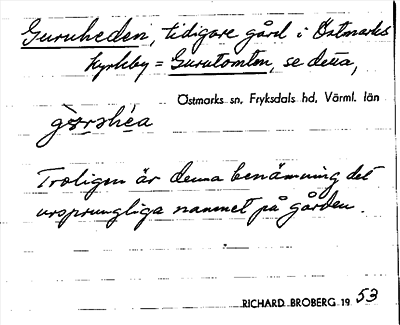 Guruheden, tidigare gård i Östmarks
kyrkby = Gurutomten, se detta,
Östmarks sn, Fryksdals hd, Värml. län
Troligen är denna benämning det
ursprungliga namnet på gården.
RICHARD BROBERG 19 53